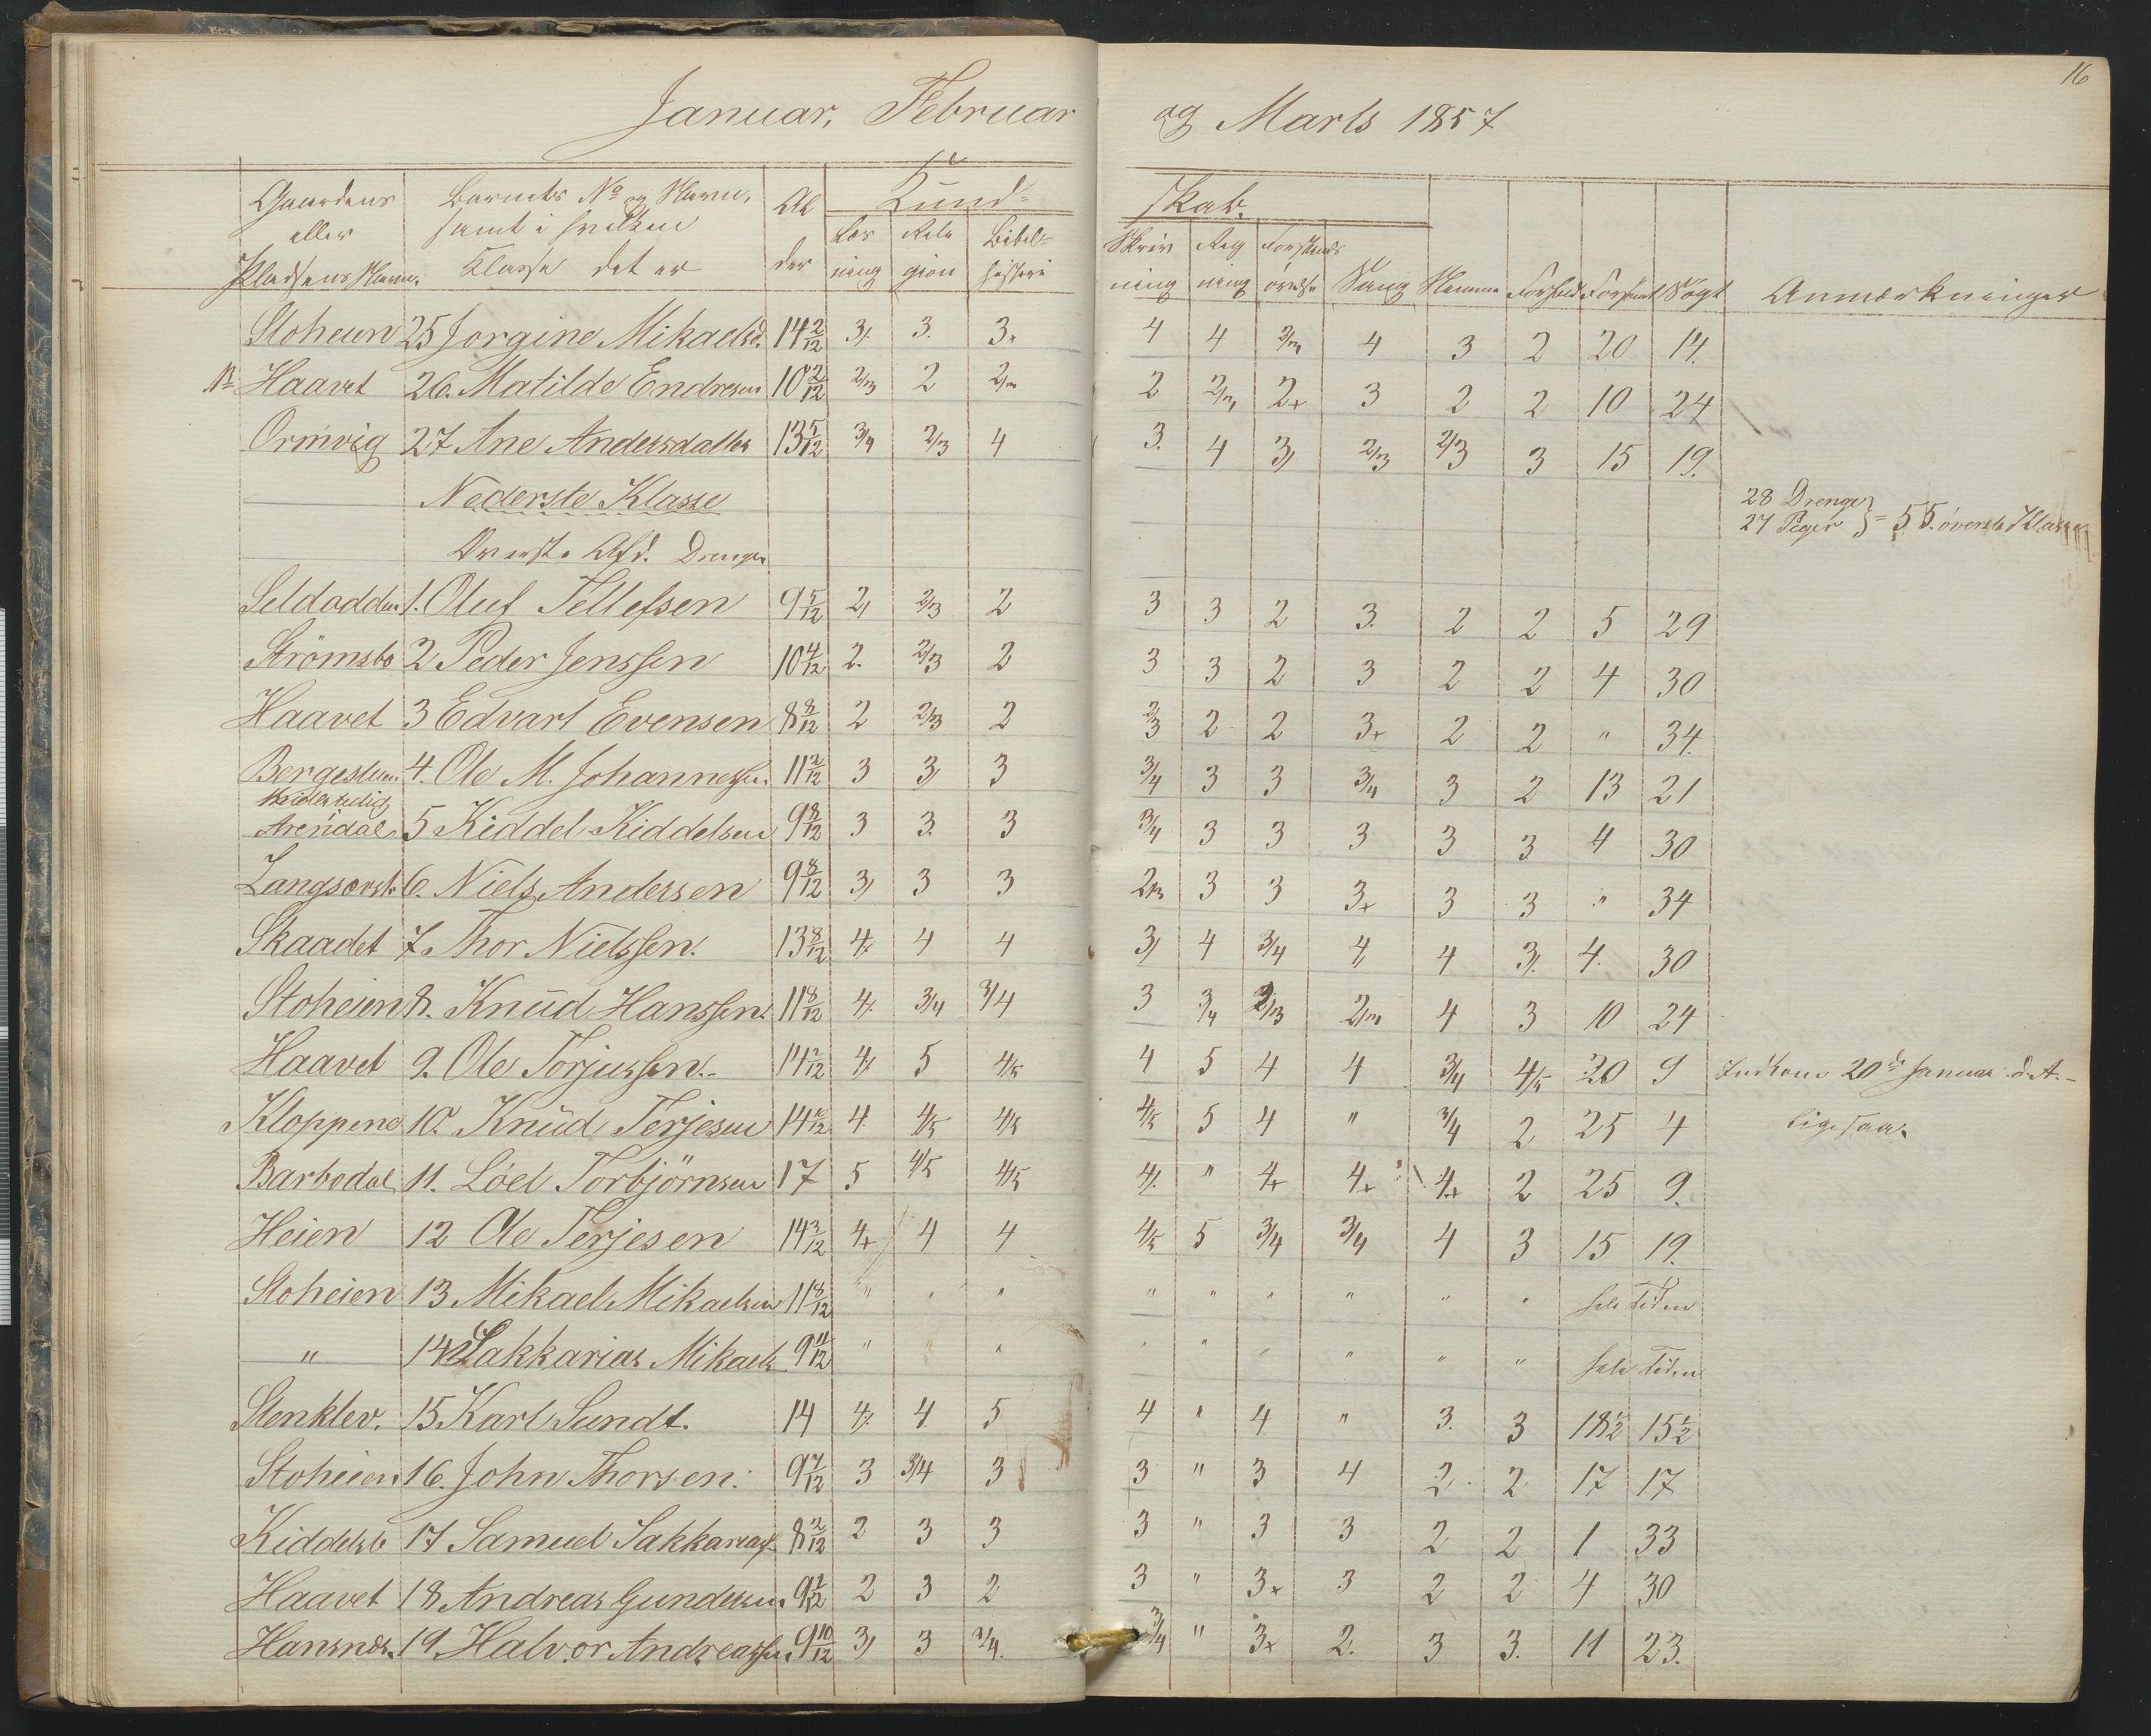 16
Januar, Februar og Marts 1857
Gaardens eller Pladsens Navn. Barnets No og Navn, samt i hvilken Klasse det er Al der Kund= skab.
Læs ning Reli gion Bibel= historie Skriv ning Reg ning Forstands øvelse Sang Nemme Forhold Forsømt Søgt Anmærkninger
Stoheien 25 Jorgine Mikaelsd. 14 2/12 3/. 3. 3+ 4 4 3/4 4 3 2 20 14.
Haavet 26. Matilde Endresen 10 2/12 2/3 2 2/3 2 2/3 2+ 3 2 2 10 24
Ormvig 27 Ane Andersdatter 13 5/12 3/4 2/3 4 3. 4 3/ 2/3 2/3 3 15 19.
Nederste Klasse
28 Drenge
27 Piger } = 55. øverste Klasse
Øverste Afd. Drenge
Seldodden 1. Oluf Tellefsen 9 5/12 2/ 2/3 2 3 3 2 3. 2 2 5 29
Strömsbo 2 Peder Jenssen 10 4/12 2. 2/3 2 3 3 2 3 2 2 4 30
Haavet 3 Edvart Evensen 8 8/12 2 2/3 2 2/3 2 2 3+ 2 2 " 34.
Bergesteen 4. Ole M. Johannessen 11 2/12 3 3/ 3 3/4 3 3 3/4 3 2 13 21
Arendal 5 Kiddel Kiddelsen 9 8/12 3 3. 3 3/4 3 3 3 3 3 4 30
Langsæveb 6. Niels Andersen 9 8/12 3/ 3 3 2/3 3 3 3+ 3 3 " 34
Skaadet 7. Thor Nielssen. 13 8/12 4/. 4 4 3/ 4 3/4 4/ 4 3/. 4. 30
Stoheien 8. Knud Hanssen. 11 8/12 4/. 3/4 3/4 3 3/4 2/3 2/3 4 3 10 24
Haavet 9. Ole Torjussen. 14 2/12 4/. 5 4/5 4 5 4 4 3/4 4/5 20 9 Indkom 20de Januar d. A.
Kloppene 10. Knud Terjesen 14 2/12 4. 4/5 4/5 4/5 5 4 " 3/4 2 25 4 ligesaa.
Barbodal 11. Löel Torbjörnsen 17 5 4/5 4/5 4/. " 4+ 4+ 4+ 2 25 9.
Heien 12 Ole Terjesen 14 3/12 4+ 4 4 4/5 5 3/4 3/4 4 3 15 19.
Stoheien 13 Mikael Mikaelsen 11 8/12 " " " " " " " " " hele Tiden
" 14 Sakkarias Mikaels 9 11/12 " " " " " " " " " hele Tiden
Stenklev. 15. Karl Sundt. 14 4/. 4 5 4 " 4 " 3. 3 18 1/2 15 1/2
Stoheien 16. John Thorsen. 9 7/12 3 3/4 3 3 " 3 4 2 2 17 17
Kiddelsb 17 Samuel Sakkariass 8 2/12 2 3 3 3 " 3 3 2 2 1 33
Haavet 18 Andreas Gundersen. 9 1/12 2 3 2 3 " 3+ 3 2 2 4 30
Hansnes. 19. Halvor Andreassen. 9 10/12 3/ 3 3/4. 3/4 " 3+ 2. 3 3. 11 23.